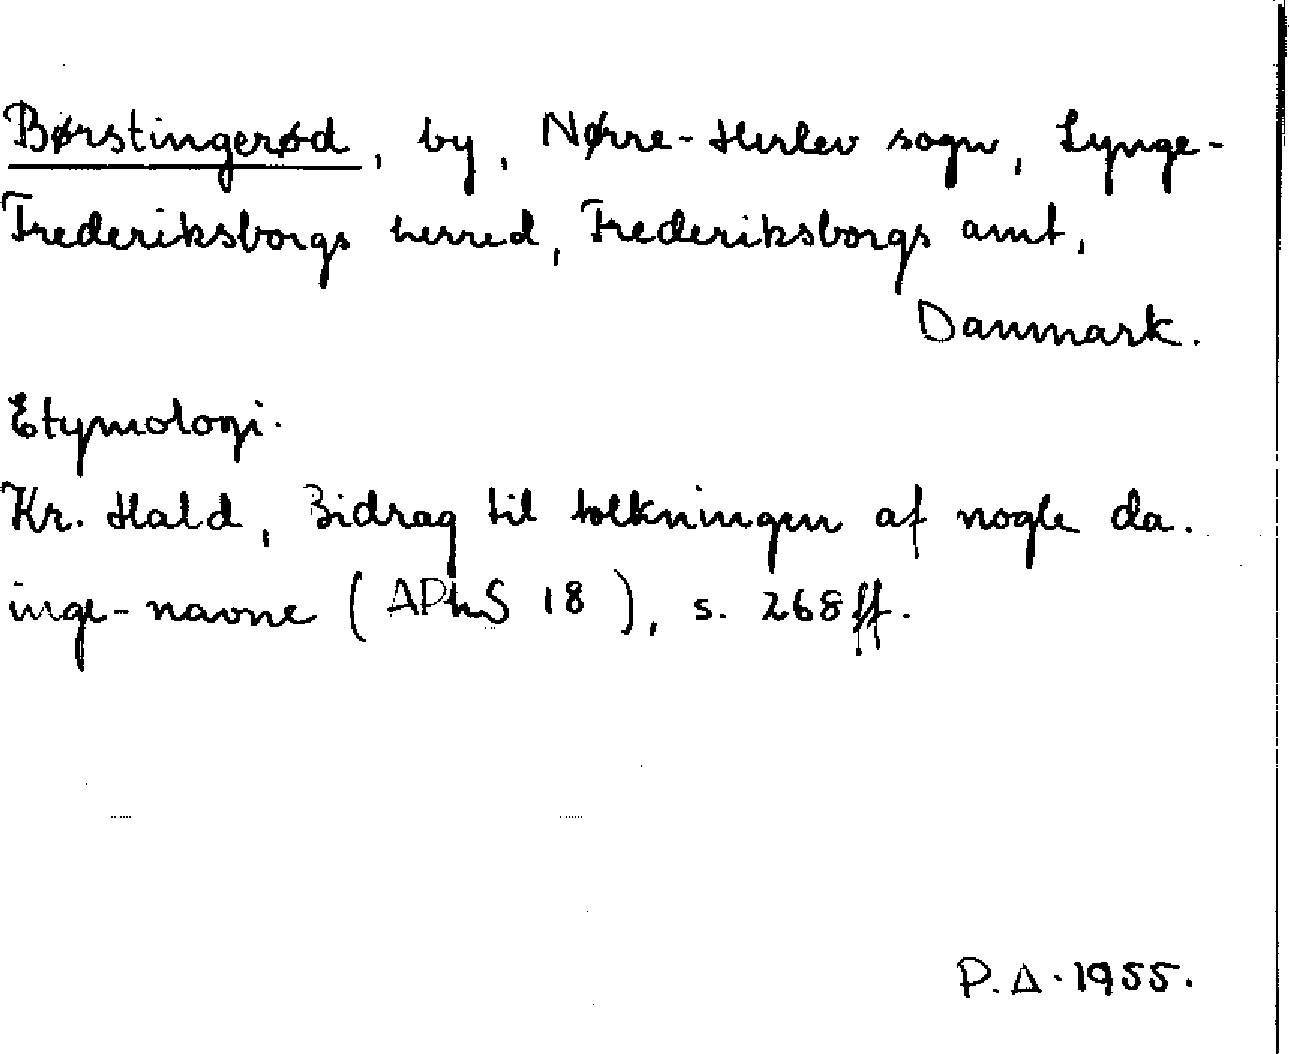 Børstingerød, by, Nørre-Herlev sogn, Lynge-
Frederiksborgs herred, Frederiksborgs amt,
Danmark.
Etymologi.
Kr. Hald, Bidrag til tolkningen af nogle da.
inge-navne (APhS 18), s. 268ff.
P.Δ.1955.